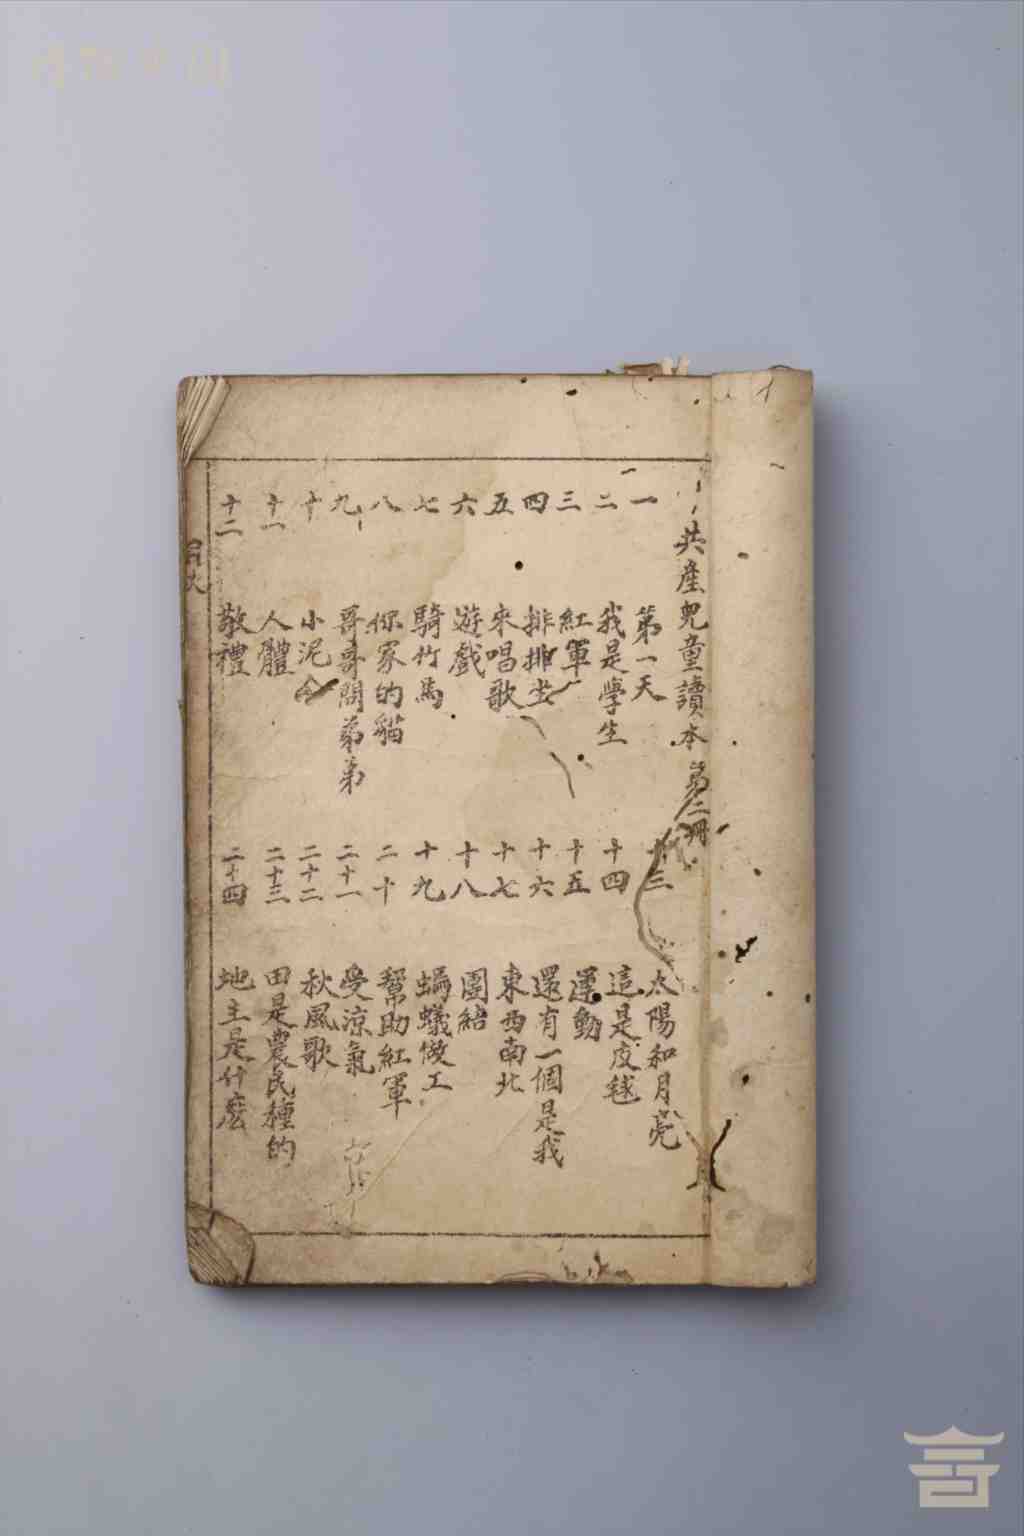 共產兒童讀本 第二冊
一 第一天
二 我是學生
三 紅軍
四 排排坐
五 來唱歌
六 遊戲
七 騎竹馬
八 你家的貓
九 哥哥問弟弟
十 小泥人
十一 人體
十二 敬禮
十三 太陽和月亮
十四 這是皮毬
十五 運動
十六 還有一個是我
十七 東西南北
十八 團結
十九 螞蟻做工
二十 幫助紅軍
二十一 受涼氣
二十二 秋風歌
二十三 田是農民種的
二十四 地主是什麼
目次